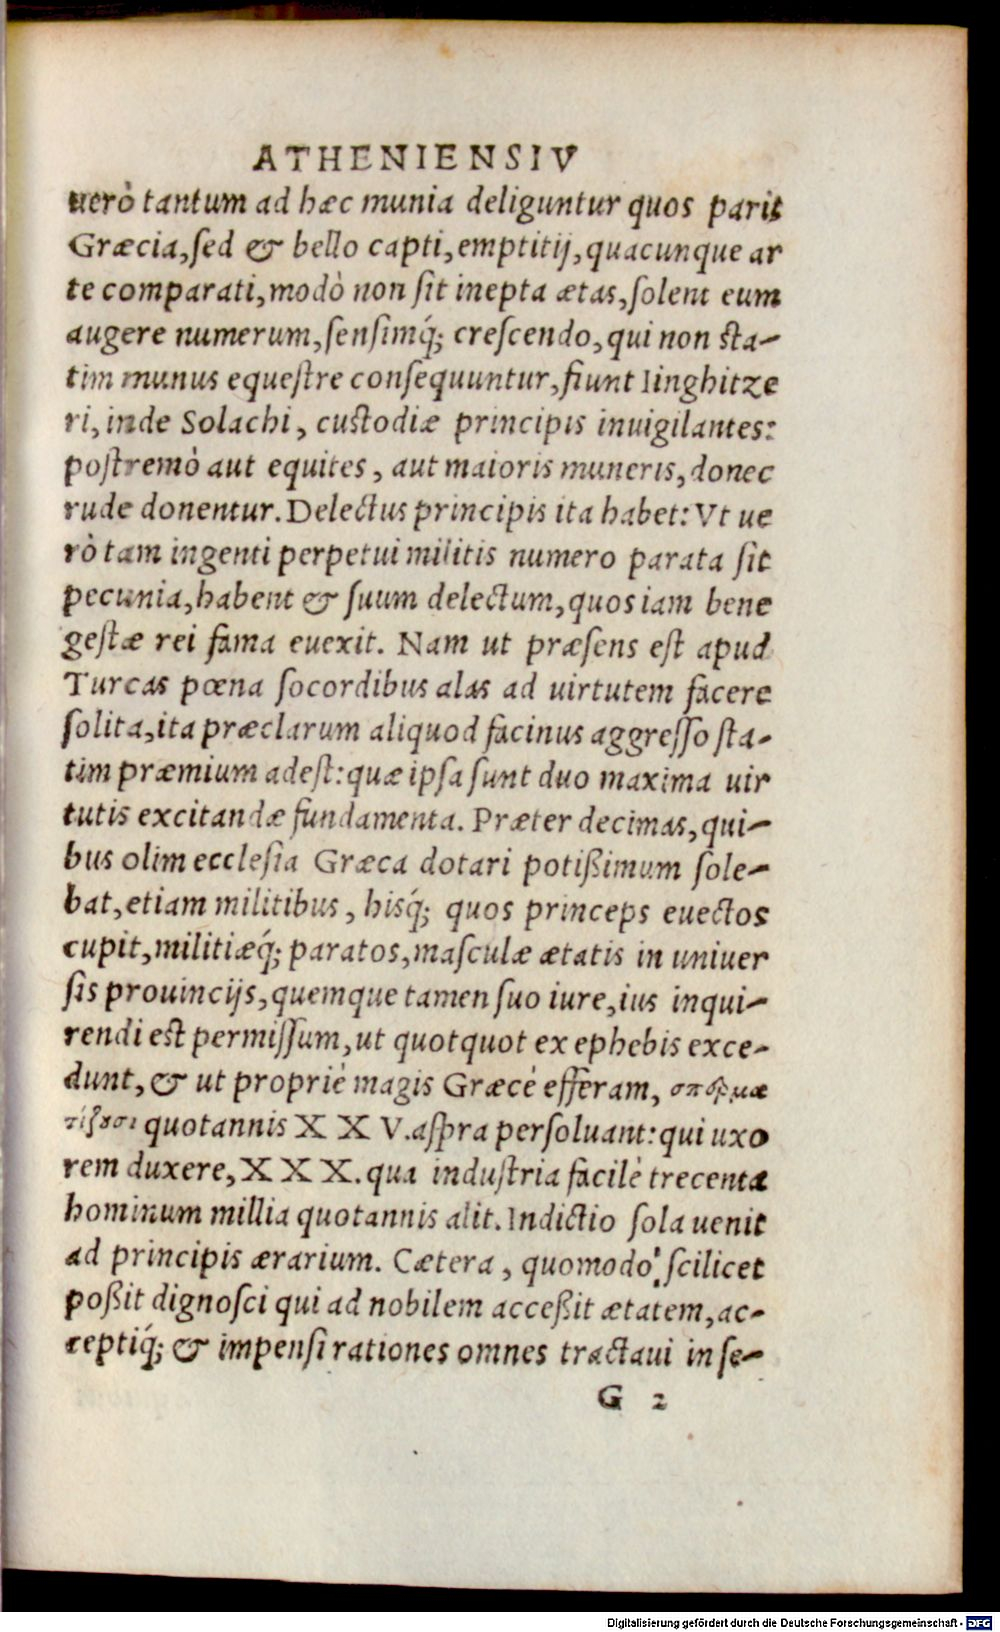 ATHENIENSIV
uerò tantum ad hæc munia deliguntur quos parit
Græcia, sed & bello capti, emptitij, quacunque ar
te comparati, modò non sit inepta ætas, solent eum
augere numerum, sensimq́; crescendo, qui non sta-
tim munus equestre consequuntur, fiunt Iinghitze
ri, inde Solachi, custodiæ principis inuigilantes:
postremò aut equites, aut maioris muneris, donec
rude donentur. Delectus principis ita habet: Vt ue
rò tam ingenti perpetui militis numero parata sit
pecunia, habent & suum delectum, quos iam bene
gestæ rei fama euexit. Nam ut præsens est apud
Turcas pœna socordibus alas ad uirtutem facere
solita, ita præclarum aliquod facinus aggresso sta-
tim præmium adest: quæ ipsa sunt duo maxima uir
tutis excitandæ fundamenta. Præter decimas, qui-
bus olim ecclesia Græca dotari potißimum sole-
bat, etiam militibus, hisq́; quos princeps euectos
cupit, militiæq́; paratos, masculæ ætatis in uniuer
sis prouincijs, quemque tamen suo iure, ius inqui-
rendi est permissum, ut quotquot ex ephebis exce-
dunt, & ut propriè magis Græcè efferam, σπερμα
τίζουσι quotannis XXV. aspra persoluant: qui uxo
rem duxere, XXX. qua industria facilè trecenta
hominum millia quotannis alit. Indictio sola uenit
ad principis ærarium. Cætera, quomodo scilicet
poßit dignosci qui ad nobilem acceßit ætatem, ac-
ceptiq́; & impensi rationes omnes tractaui in se-
G 2
Digitalisierung gefördert durch die Deutsche Forschungsgemeinschaft - DFG